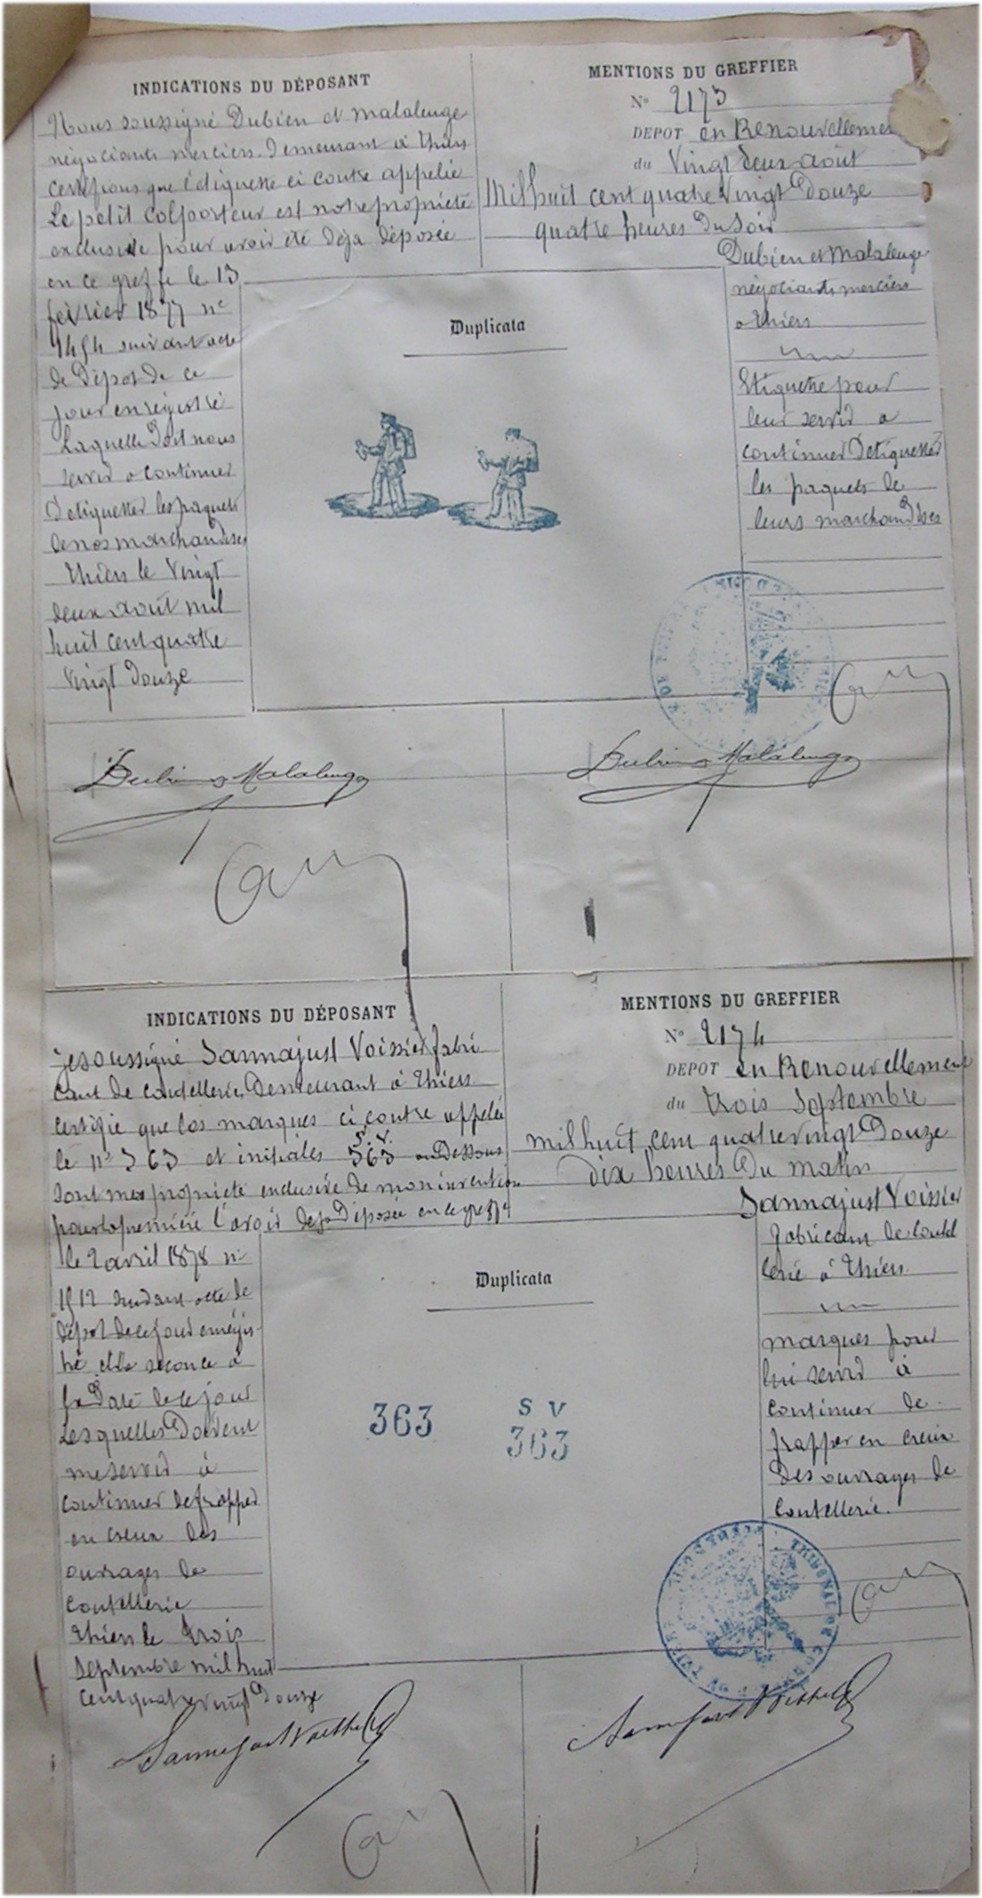 INDICATIONS DU DÉPOSANT
Nous soussigné Dubien et Malaleuge
négociants merciers demeurant à Thiers
certifions que l'étiquette ci contre appelée
Le petit Colporteur est notre propriété
exclusive pour avoir été déja déposée
en ce greffe le 13
février 1877 n°
suivant acte
de Dépot de ce
jour enregistré
Laquelle doit nous
servir a continuer
D'etiquetter les paquets
de nos marchandises
Thiers le Vingt
deux août mil
huit cent quatre
Vingt Douze
MENTIONS DU GREFFIER
N° 2173
DEPOT en Renouvellemen
du Vingt deux août
Mil huit cent quatre Vingt Douze
quatre heures Du Soir
Dubien et Malaleuge
négociants merciers
a Thiers
Etiquette pour
leur servir a
continuer D'etiquetter
les paquets de
leurs marchandises
Duplicata
Dubien & Malaleuge
Dubien & Malaleuge
INDICATIONS DU DÉPOSANT
Je soussigné Sannajust Voissier fabri
cant de coutellerie Demeurant à Thiers
certifie que les marques ci contre appelée
le n° 363 et initiales S V 363 au Dessous
sont mes propriété exclusive de mon invention
pour la première l'avoir deja Déposée en ce greffe
le 2 avril 1878 n°
1512 suivant acte de
dépot de ce jour enregis-
tré et la seconde à
la Date de ce jour
Lesquelles Doivent
me servir à
continuer de frapper
en creux des
ouvrages de
coutellerie
Thiers le trois
septembre mil huit
cent quatre vingt Douze
MENTIONS DU GREFFIER
N° 2174
DEPOT en Renouvellement
du trois Septembre
mil huit cent quatre vingt Douze
dix heures Du matin
Sannajust Voissier
fabricant de coutel
lerie à Thiers
marques pour
lui servir à
continuer de
frapper en creux
Des ouvrages de
Coutellerie.
Duplicata
363
S V
363
TRIBUNAL DE COM
Sannajust Voissier
Sannajust Voissier